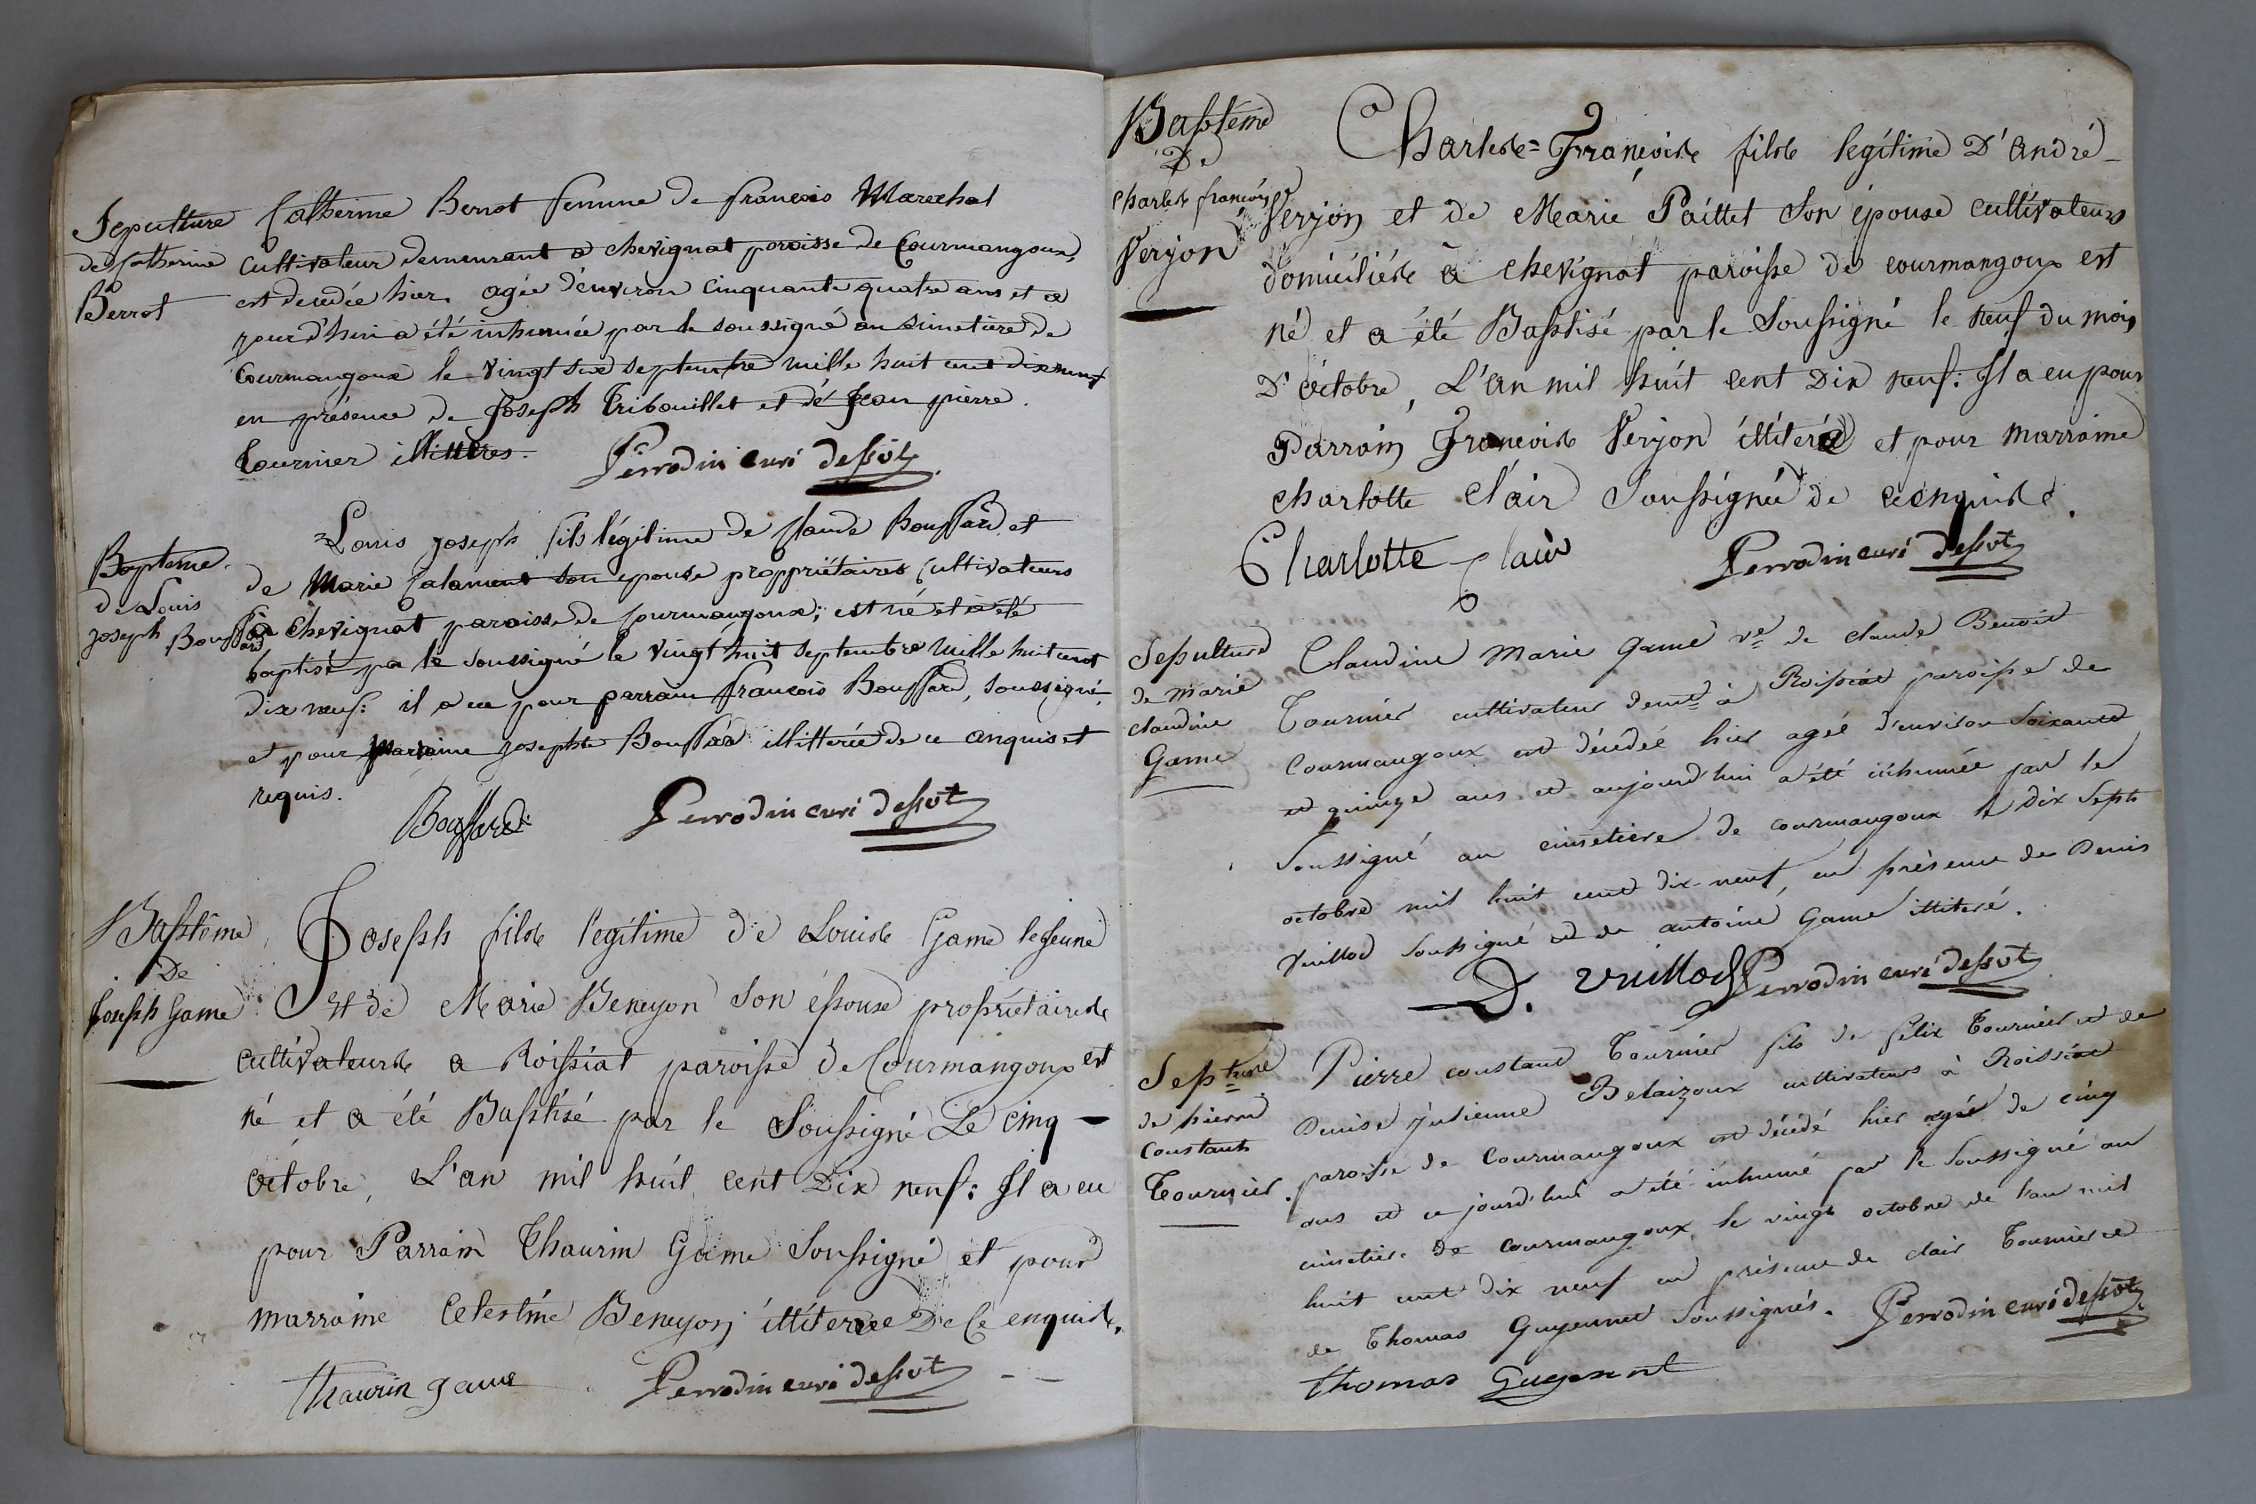 Sepulture
de Catherine
Berrot
Catherine Berrot femme de françois Marechal
cultivateur demeurant a chevignat paroisse de Courmangoux,
est decedée hier. agée d'environ cinquante quatre ans et a
jourd'hui a été inhumée par le soussigné au simetiere de
Courmangoux le vingt six septembre mille huit cent dix neuf
en présence de Joseph Tribouillet et de Jean pierre
tournier illittérés.
Perrodin curé dessvt
Bapteme
de Louis
joseph Bouffard
Louis joseph fils légitime de Claude Bouffard et
de Marie Calament son epouse proppriétaires Cultivateurs
a Chevignat paroisse de Courmangoux; est né et a été
baptisé par le soussigné le vingt huit septembre mille huit cent
dix neuf: il a eu pour parrain françois Bouffard, soussigné,
et pour Marraine josephte Bouffard illitterée de ce anquis et
requis.
Bouffard
Perrodin curé dessvt
Baptême
De
Joseph Game
Joseph fils legitime de Louis Game le jeune
Et de Marie Beneyon son épouse propriétaires
cultivateurs a Roissiat paroisse de Courmangoux est
né et a été Baptisé par le Soussigné Le cinq
octobre, L'an mil huit cent Dix neuf: Il a eu
pour Parrain Thaurin Game Soussigné et pour
marraine Celestine Beneyon illiterée De Ce enquis.
Thaurin game
Perrodin curé dessvt
Baptême
De
Charles françois
Verjon
Charles=François fils legitime D'André
Verjon et de Marie Paillet Son épouse cultivateurs
domiciliés à chevignat paroisse de courmangoux est
né et a été Baptisé par le Soussigné le neuf du mois
D'octobre, L'an mil huit cent Dix neuf: Il a eu pour
Parrain François Verjon illiteré et pour marraine
charlotte clair Soussignée de ce enquise.
Charlotte Clair
Perrodin curé dessvt
Sepulture
de marie
claudine
Game
Claudine Marie Game ve de claude Benoit
Tournier cultivateur demt à Roissiat paroisse de
Courmangoux est décédée hier agée d'environ soixante
et quinze ans et aujourd'hui a été inhumée par le
soussigné au cimetiere de courmangoux le dix sept
octobre mil huit cent dix-neuf, en présence de Denis
Vuillod soussigné et de antoine Game illiteré.
D. Vuillod
Perrodin curé dessvt
Septure
de pierre
constant
Tournier
Pierre constant Tournier fils de félix Tournier et de
Denise julienne Belaizoux cultivateurs à Roissiat
paroisse de Courmangoux est décédé hier agée de cinq
ans et ce jourd'hui a été inhumé par le soussigné au
cimetiere de courmangoux, le vingt octobre de l'an mil
huit cent dix neuf en présence de clair Tournier et
de Thomas Guyennet soussignés.
Perrodin curé dessvt
thomas Guyennt